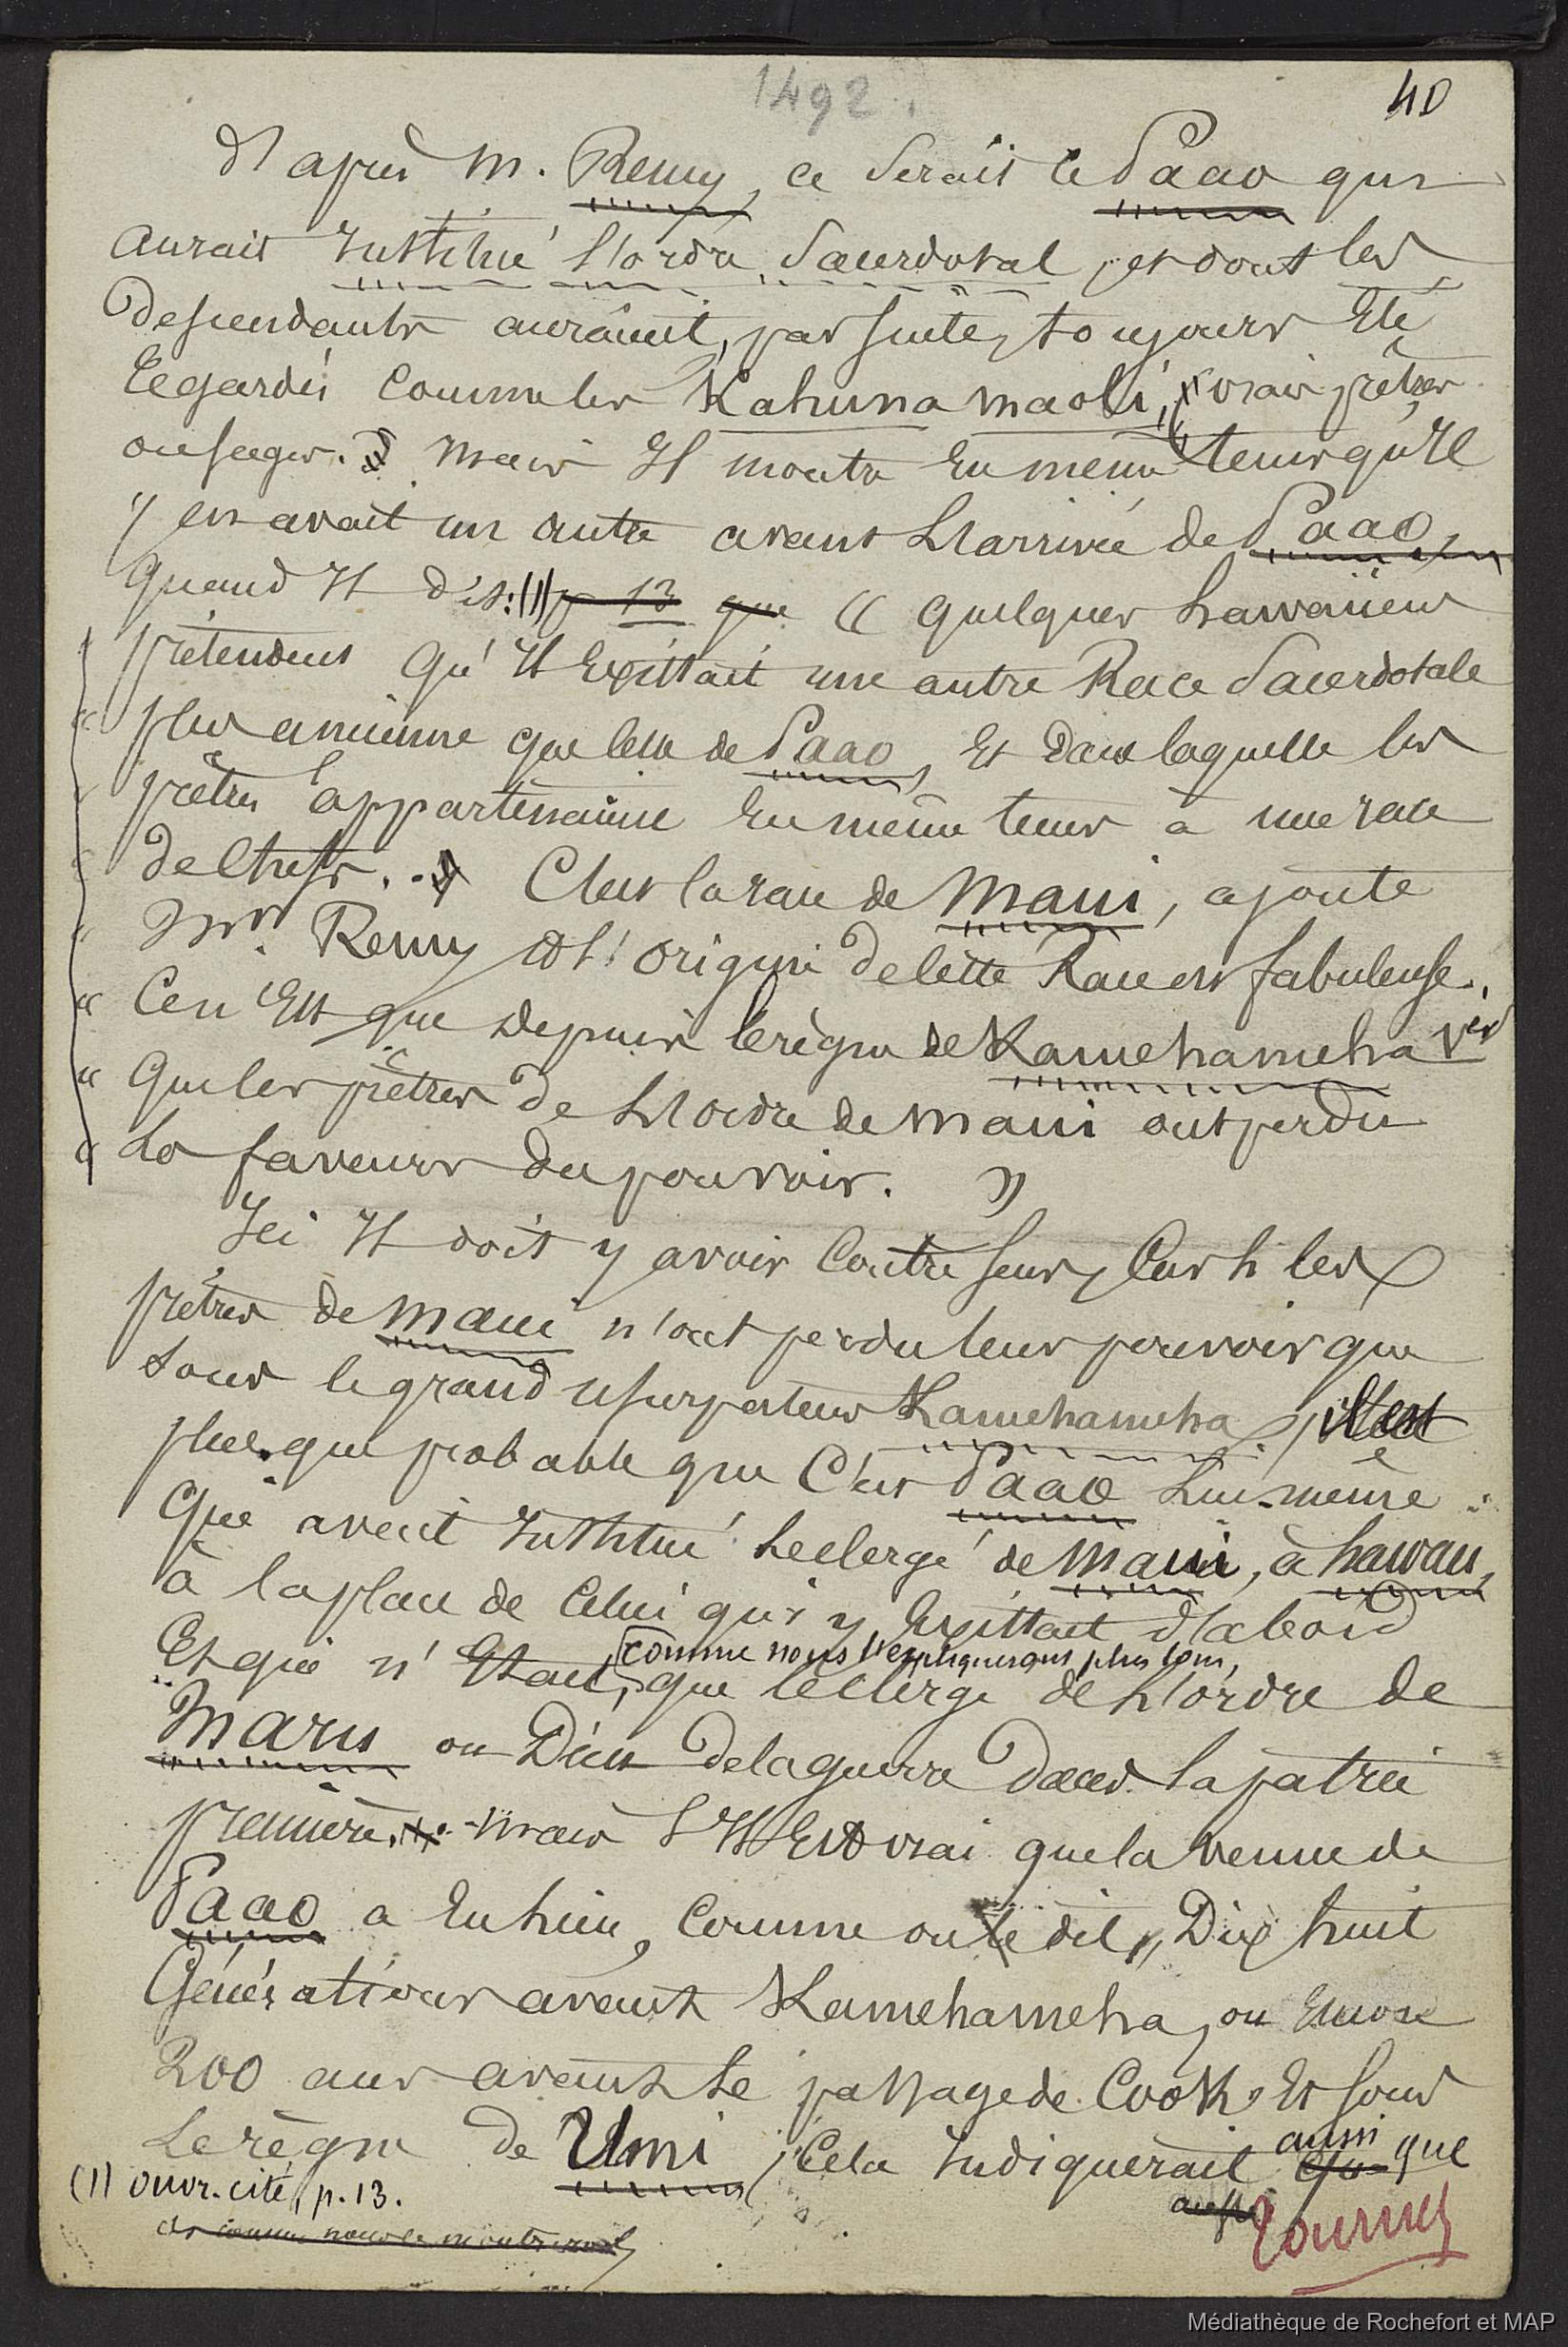 1492.
40
D'après M. Remy, ce serait ce Paao qui
aurait institué l'ordre sacerdotal, et dont les
descendants auraient, par suite, toujours été
regardés comme les Kahuna maoli, (vrais prêtres
ou sages. Mais Il montre en même tems qu'Il
y en avait un autre avant L'arrivée de Paao,
quand Il dit: (1) p 13 que « quelques hawaiiens
prétendent qu'Il Existait une autre Race Sacerdotale
« plus ancienne que celle de Paao, Et dans laquelle les
« prêtres appartenaient En même tems à une race
« de Chefs. C'est la race de Maui, ajoute
« Mr. Remy et l'origine de cette Race est fabuleuse.
« Ce n'Est que depuis le règne de Kamehameha 1er
« Que les prêtres de L'ordre de Maui ont perdu
« La faveur du pouvoir. »
Ici Il doit y avoir Contre sens, Car si les
prêtres de Maui n'ont perdu leur pouvoir que
sous le grand usurpateur Kamehameha, il est
plus que probable que C'est Paao Lui-même
Qui avait Institué Le clergé de Maui, à hawaii,
à la place de Celui qui y Existait d'abord
Et qui n'Etait, comme nous l'expliquerons plus loin,
que le clergé de L'ordre de
Maru ou Dieu de la guerre dans la patrie
première. Mais s'Il Est vrai que la venue de
Paao a Eu lieu, Comme on le dit, Dix huit
Générations avant Kamehameha, ou Encore
200 ans avant Le passage de Cook, Et sous
Le règne de Umi, Cela Indiquerait aussi que
aussi
(1) ouvr. cité, p. 13.
et comme nous le montrerons,
Tournez
Médiathèque de Rochefort et MAP